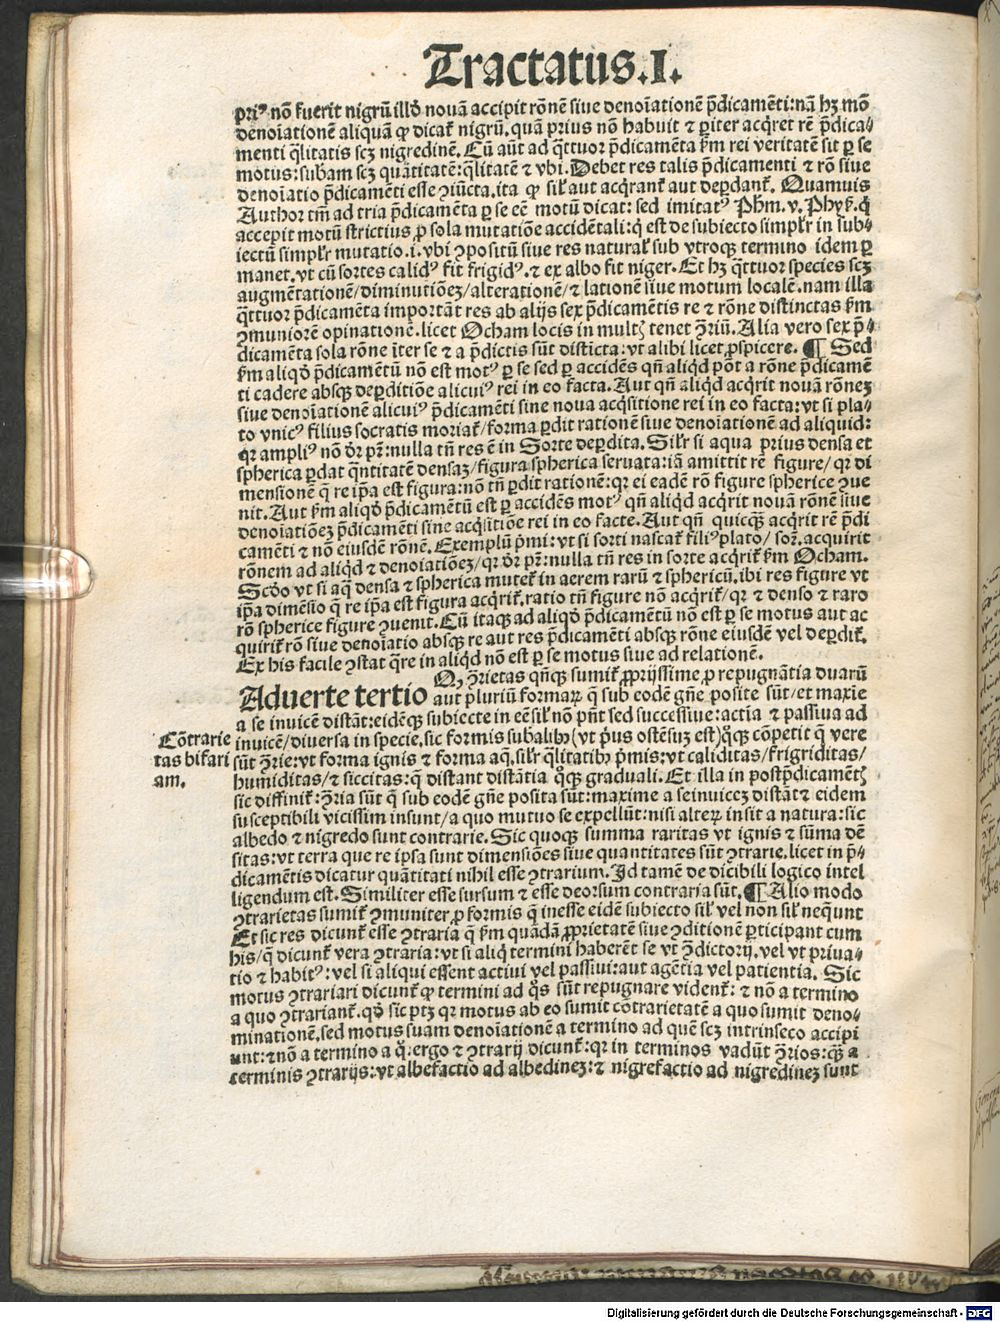 Tractatus.I.
priꝰ nō fuerit nigrū illō nouā accipit rōnē siue denoīationē p̄dicamēti: nā hꝫ mō
denoīationē aliquā ꝙ dicaṫ nigrū. quā prius nō habuit ⁊ ꝑiter acq̄ret rē p̄dica⸗
menti q̄litatis scꝫ nigredinē. Cū aūt ad q̄ttuor p̄dicamēta ẜm rei veritatē sit ꝑ se
motus: subam̄ scꝫ quātitatē: q̄litatē ⁊ vbi. Debet res talis p̄dicamenti ⁊ rō siue
denoīatio p̄dicamēti esse ꝯiūcta. ita ꝙ sil̄ aut acq̄ranṫ aut deꝑdanṫ. Quamuis
Author tm̄ ad tria p̄dicamēta ꝑ se eē motū dicat: sed imitatꝰ Ph̄m. v. Phyẜ. q̇
accepit motū strictius, ꝓ sola mutatiōe accidētali: q̇ est de subiecto simplr̄ in sub⸗
iectū simplr̄ mutatio. i. vbi ꝯpositū siue res natural̄ sub vtroqꝫ termino idem ꝑ
manet. vt cū sortes calidꝰ fit frigidꝰ. ⁊ ex albo fit niger. Et hꝫ q̄ttuor species scꝫ
augmētationē/ diminutiōeꝫ/ alterationē/ ⁊ lationē siue motum localē. nam illa
q̄ttuor p̄dicamēta importāt res ab alijs sex p̄dicamētis re ⁊ rōne distinctas ẜm
ꝯmuniorē opinationē. licet Ocham locis in multꝭ tenet ꝯ̄riū. Alia vero sex p̄⸗
dicamēta sola rōne īter se ⁊ a p̄dictis sūt distīcta: vt alibi licet ꝓspicere. ¶ Sed
ẜm aliqō p̄dicamētū nō est motꝰ ꝑ se sed ꝑ accidēs qn̄ aliq̇d pōt a rōne p̄dicamē
ti cadere absqꝫ deꝑditiōe alicuiꝰ rei in eo facta. Aut qn̄ aliq̇d acq̇rit nouā rōneꝫ
siue denoīationē alicuiꝰ p̄dicamēti sine noua acq̇sitione rei in eo facta: vt si pla⸗
to vnicꝰ filius socratis moriaṫ/ forma ꝑdit rationē siue denoīationē ad aliquid:
qꝛ ampliꝰ nō dr̄ pr̄: nulla tn̄ res ē in Sorte deꝑdita. Silr̄ si aqua prius densa et
spherica ꝑdat q̄ntitatē densaꝫ/ figura spherica seruata: iā amittit rē figure/ qꝛ di
mensionē q̄ re ip̄a est figura: nō tn̄ ꝑdit rationē: qꝛ ei eadē rō figure spherice ꝯue
nit. Aut ẜm aliqō p̄dicamētū est ꝑ accidēs motꝰ qn̄ aliq̇d acq̇rit nouā rōnē siue
denoīatiōeꝫ p̄dicamēti sine acq̇sitiōe rei in eo facte. Aut qn̄ quicqꝫ acq̇rit rē p̄di
camēti ⁊ nō eiusdē rōnē. Exemplū p̄mi: vt si sorti nascaṫ filiꝰ plato/ sor̄. acquirit
rōnem ad aliq̇d ⁊ denoīatiōeꝫ/ qꝛ dr̄ pr̄: nulla tn̄ res in sorte acq̇riṫ ẜm Ocham.
Scd̄o vt si aq̄ densa ⁊ spherica muteṫ in aerem rarū ⁊ sphericū. ibi res figure vt
ip̄a dimēsio q̄ re ip̄a est figura acq̇riṫ. ratio tn̄ figure nō acq̇riṫ/ qꝛ ⁊ denso ⁊ raro
rō spherice figure ꝯuenit. Cū itaqꝫ ad aliqō p̄dicamētū nō est ꝑ se motus aut ac
quiriṫ rō siue denoīatio absqꝫ re aut res p̄dicamēti absqꝫ rōne eiusdē vel deꝑdiṫ.
Ex his facile ꝯstat q̄re in aliq̇d nō est ꝑ se motus siue ad relationē.
Aduerte tertio Qꝫ ꝯ̄rietas qn̄qꝫ sumiṫ ꝓprijssime, ꝓ repugnātia duarū
aut pluriū formaꝝ q̄ sub eodē gn̄e posite sūt/ et maxīe
a se inuicē distāt: eidēqꝫ subiecte in eē sil̄ nō pn̄t sed successiue: actīa ⁊ passiua ad
Cōtrarie
tas bifari
am.
inuicē/ diuersa in specie. sic formis subalibꝫ (vt p̄us ostēsuꝫ est) q̊qꝫ cōpetit q̄ vere
sūt ꝯ̄rie: vt forma ignis ⁊ forma aq̄. silr̄ q̄litatibꝫ p̄mis: vt caliditas/ frigriditas/
humiditas/ ⁊ siccitas: q̄ distant distātia q̊qꝫ graduali. Et illa in postp̄dicamētꝭ
sic diffiniṫ: ꝯ̄ria sūt q̄ sub eodē gn̄e posita sūt: maxime a seinuiceꝫ distāt ⁊ eidem
susceptibili vicissim insunt/ a quo mutuo se expellūt: nisi alteꝝ insit a natura: sic
albedo ⁊ nigredo sunt contrarie. Sic quoqꝫ summa raritas vt ignis ⁊ sūma dē
sitas: vt terra que re ipsa sunt dimensiōes siue quantitates sūt ꝯtrarie. licet in p̄⸗
dicamētis dicatur quātitati nihil esse ꝯtrarium. Id tamē de dicibili logico intel
ligendum est. Similiter esse sursum ⁊ esse deorsum contraria sūt. ¶ Alio modo
ꝯtrarietas sumiṫ ꝯmuniter, ꝓ formis q̄ inesse eidē subiecto sil̄ vel non sil̄ neq̄unt
Et sic res dicunṫ esse ꝯtraria q̄ ẜm quādā ꝓprietatē siue ꝯditionē ꝑticipant cum
his/ q̄ dicunṫ vera ꝯtraria: vt si aliq̇ termini haberēt se vt ꝯ̄dictorij. vel vt priua⸗
tio ⁊ habitꝰ: vel si aliqui essent actiui vel passiui: aut agētia vel patientia. Sic
motus ꝯtrariari dicunṫ ꝙ termini ad q̊s sūt repugnare videnṫ: ⁊ nō a termino
a quo ꝯtrarianṫ. qō sic ptꝫ qꝛ motus ab eo sumit cōtrarietatē a quo sumit deno⸗
minationē. sed motus suam denoīationē a termino ad quē scꝫ intrinseco accipi
unt: ⁊ nō a termino a q̊. ergo ⁊ ꝯtrarij dicunṫ: qꝛ in terminos vadūt ꝯ̄rios: q̄ꝫ a
terminis ꝯtrarijs: vt albefactio ad albedineꝫ: ⁊ nigrefactio ad nigredineꝫ sunt
Digitalisierung gefördert durch die Deutsche Forschungsgemeinschaft - DFG